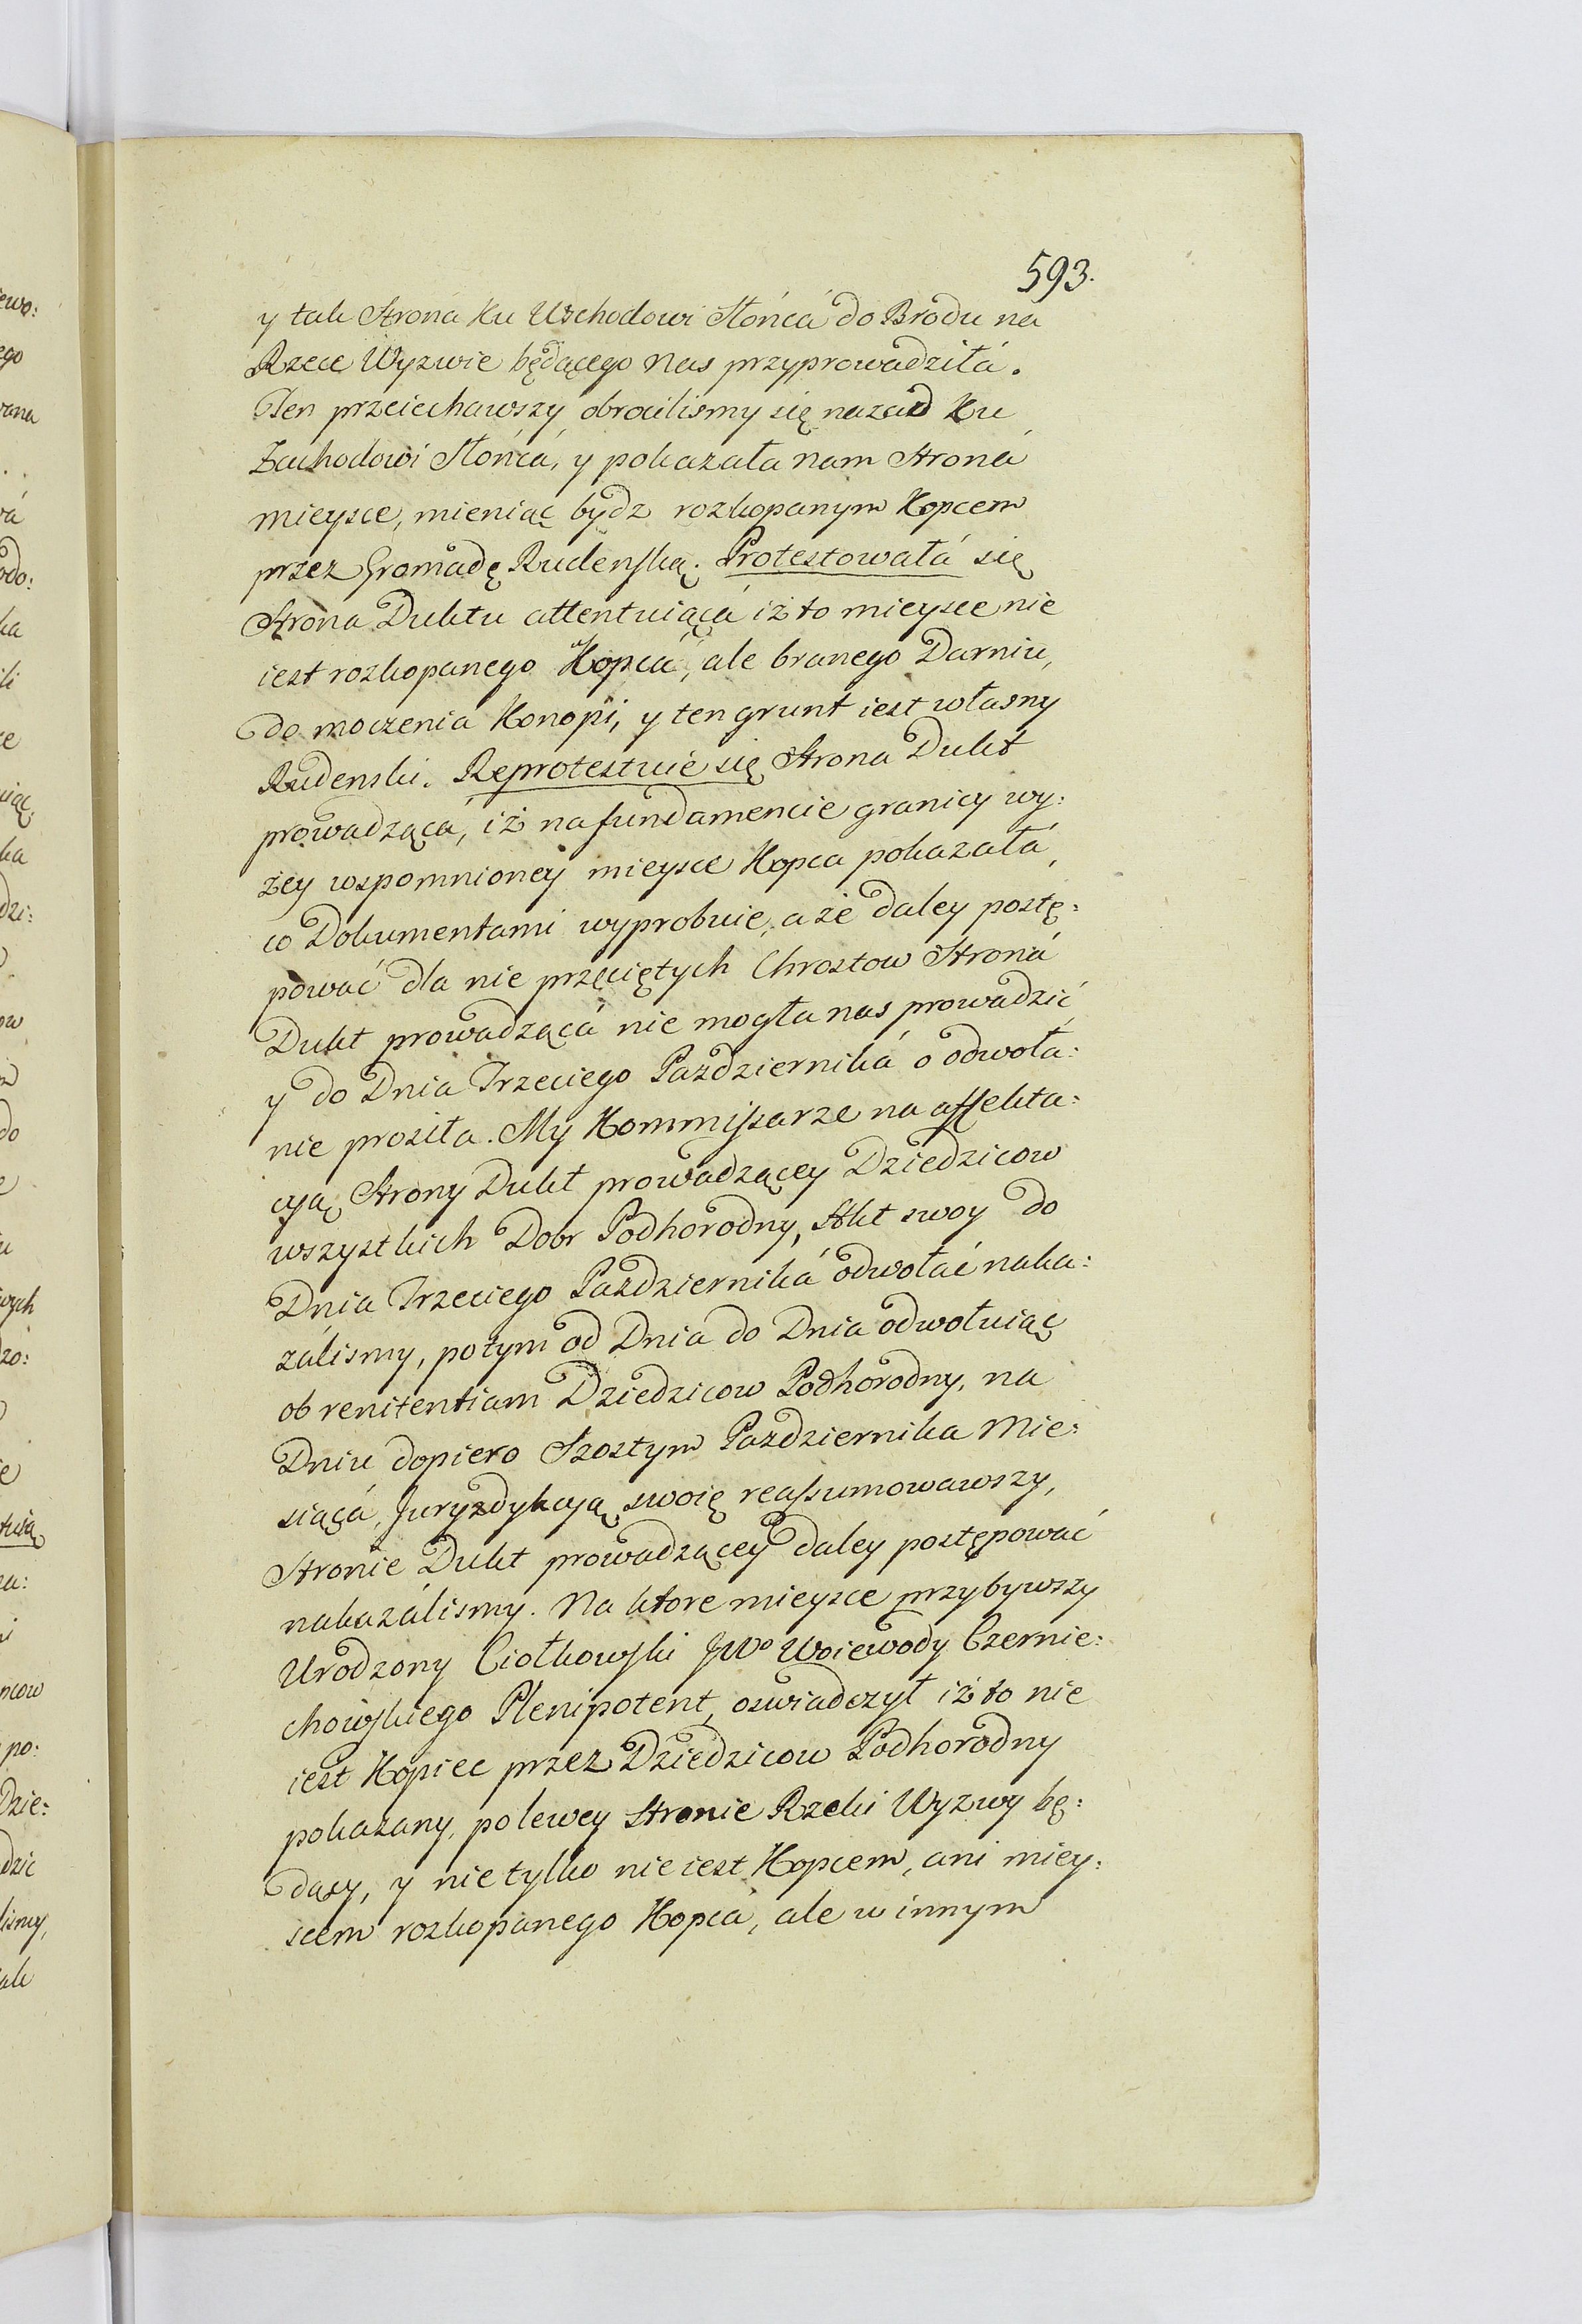 593.
y tak Strona ku Wschodowi Słońcá do Brodu na
Rzece Wyzwie będącego nas przyprowadziłá.
Ten przeiechawszy obrocilismy się nazad ku
Zachodowi Słońcá, y pokazała nam Stroná
mieysce, mieniąc bydz rozkopanym Kopcem
przez Gromadę Rudenską. Protestowałá się
Strona Duktu attentuiącá iż to mieysce nie
iest rozkopanego Kopcá, ale branego Darniu,
do moczenia Konopi, y ten grunt iest własny
Rudenski. Reprotestuie się Strona Dukt
prowadzącá, iż na fundamencie granicy wy:
żey wspomnioney mieysce Kopca pokazałá,
co Dokumentami wyprobuie, a że daley postę:
pować dla nie przęciętych Chrostow Stroná
Dukt prowadzącá nie mogła nas prowadzić,
y do Dnia Trzeciego Pazdziernika o odwoła:
nie prosiła. My Kommissarze na affekta:
cyą Strony Dukt prowadzącey Dziedzicow
wszystkich Dobr Podhorodny, Akt swoy do
Dnia Trzeciego Pazdziernika odwołać naka:
zálismy, potym od Dnia do Dnia odwołuiąc
ob renitentiam Dziedzicow Podhorodny, na
Dniu dopiero Szostym Pazdziernika Mie:
siącá, Juryzdykcyą swoię reassumowawszy,
Stronie Dukt prowadzącey daley postępować
nakazálismy. Na ktore mieysce przybywszy
Urodzony Ciołkowski JWo Woiewody Czernie:
chowskiego Plenipotent, oswiadczył iż to nie
iest Kopiec przez Dziedzicow Podhorodny
pokazany, po lewey Stronie Rzeki Wyzwy bę:
dący, y nie tylko nie iest Kopcem, ani miey:
scem rozkopanego Kopcá, ale w innym